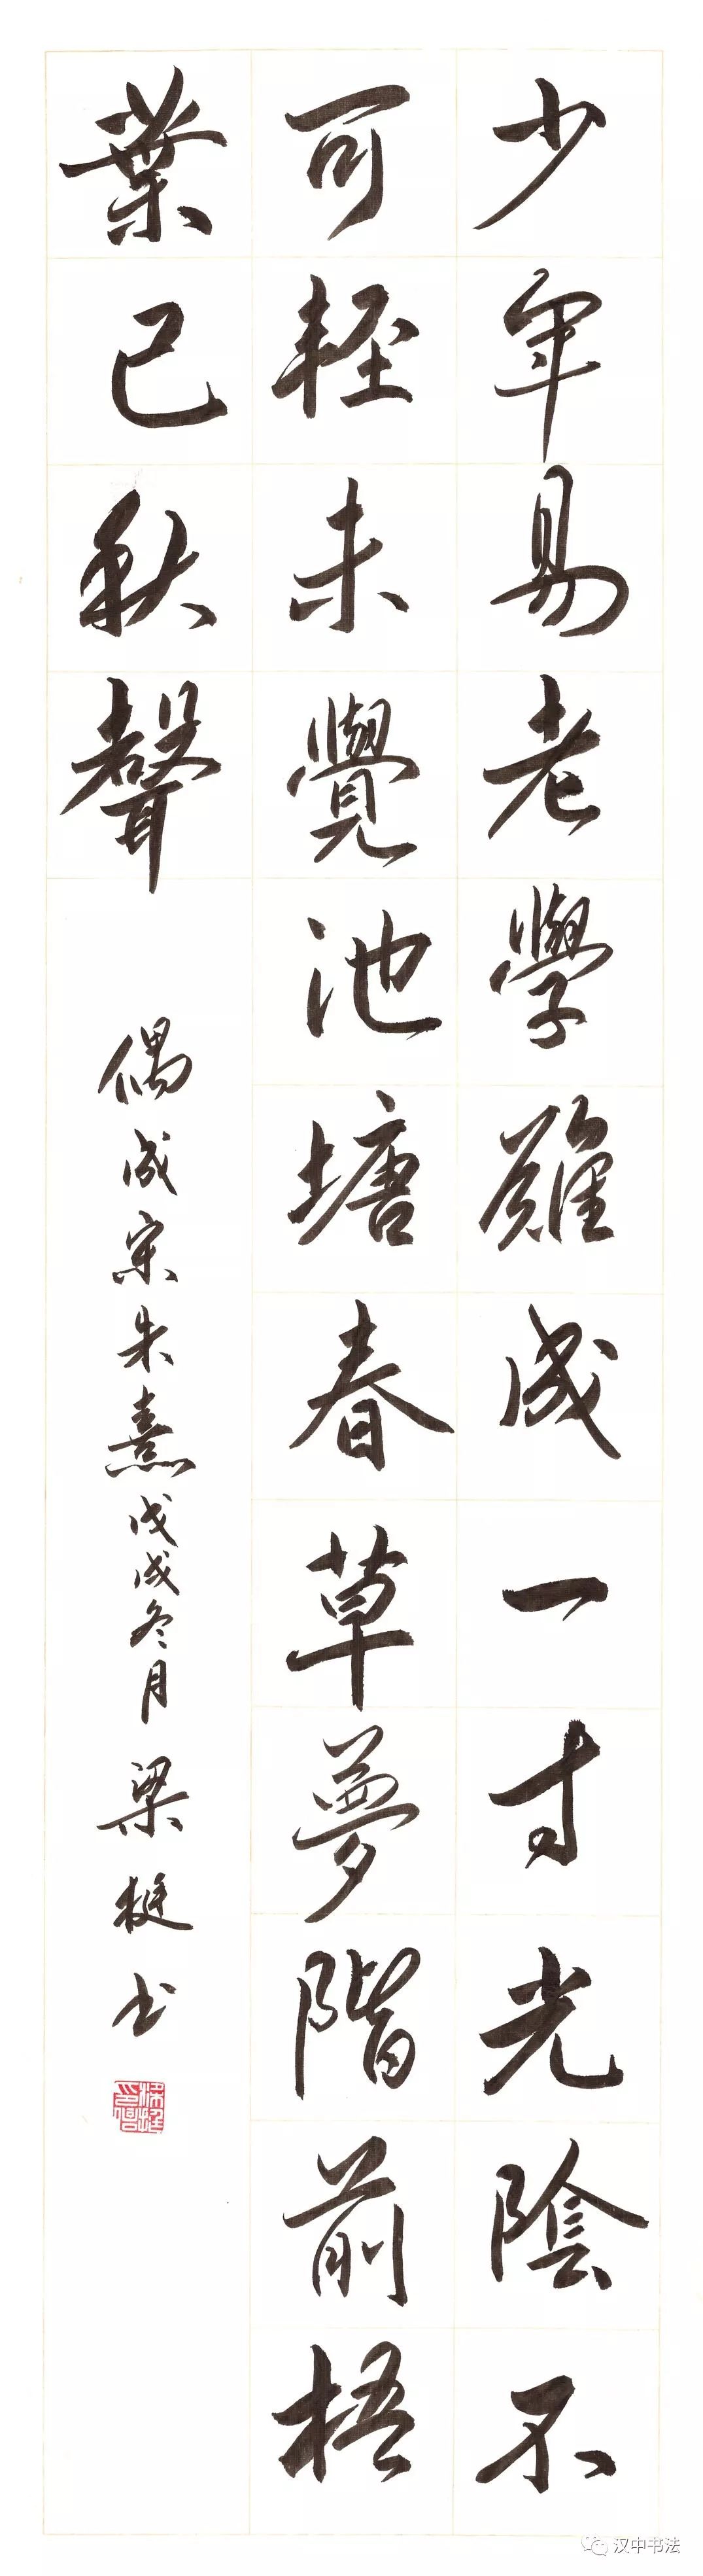 少年易老學難成一寸光陰不
可輕未覺池塘春草夢階前梧
葉已秋聲
偶成宋朱熹戊戌冬月梁梃书
汉中书法